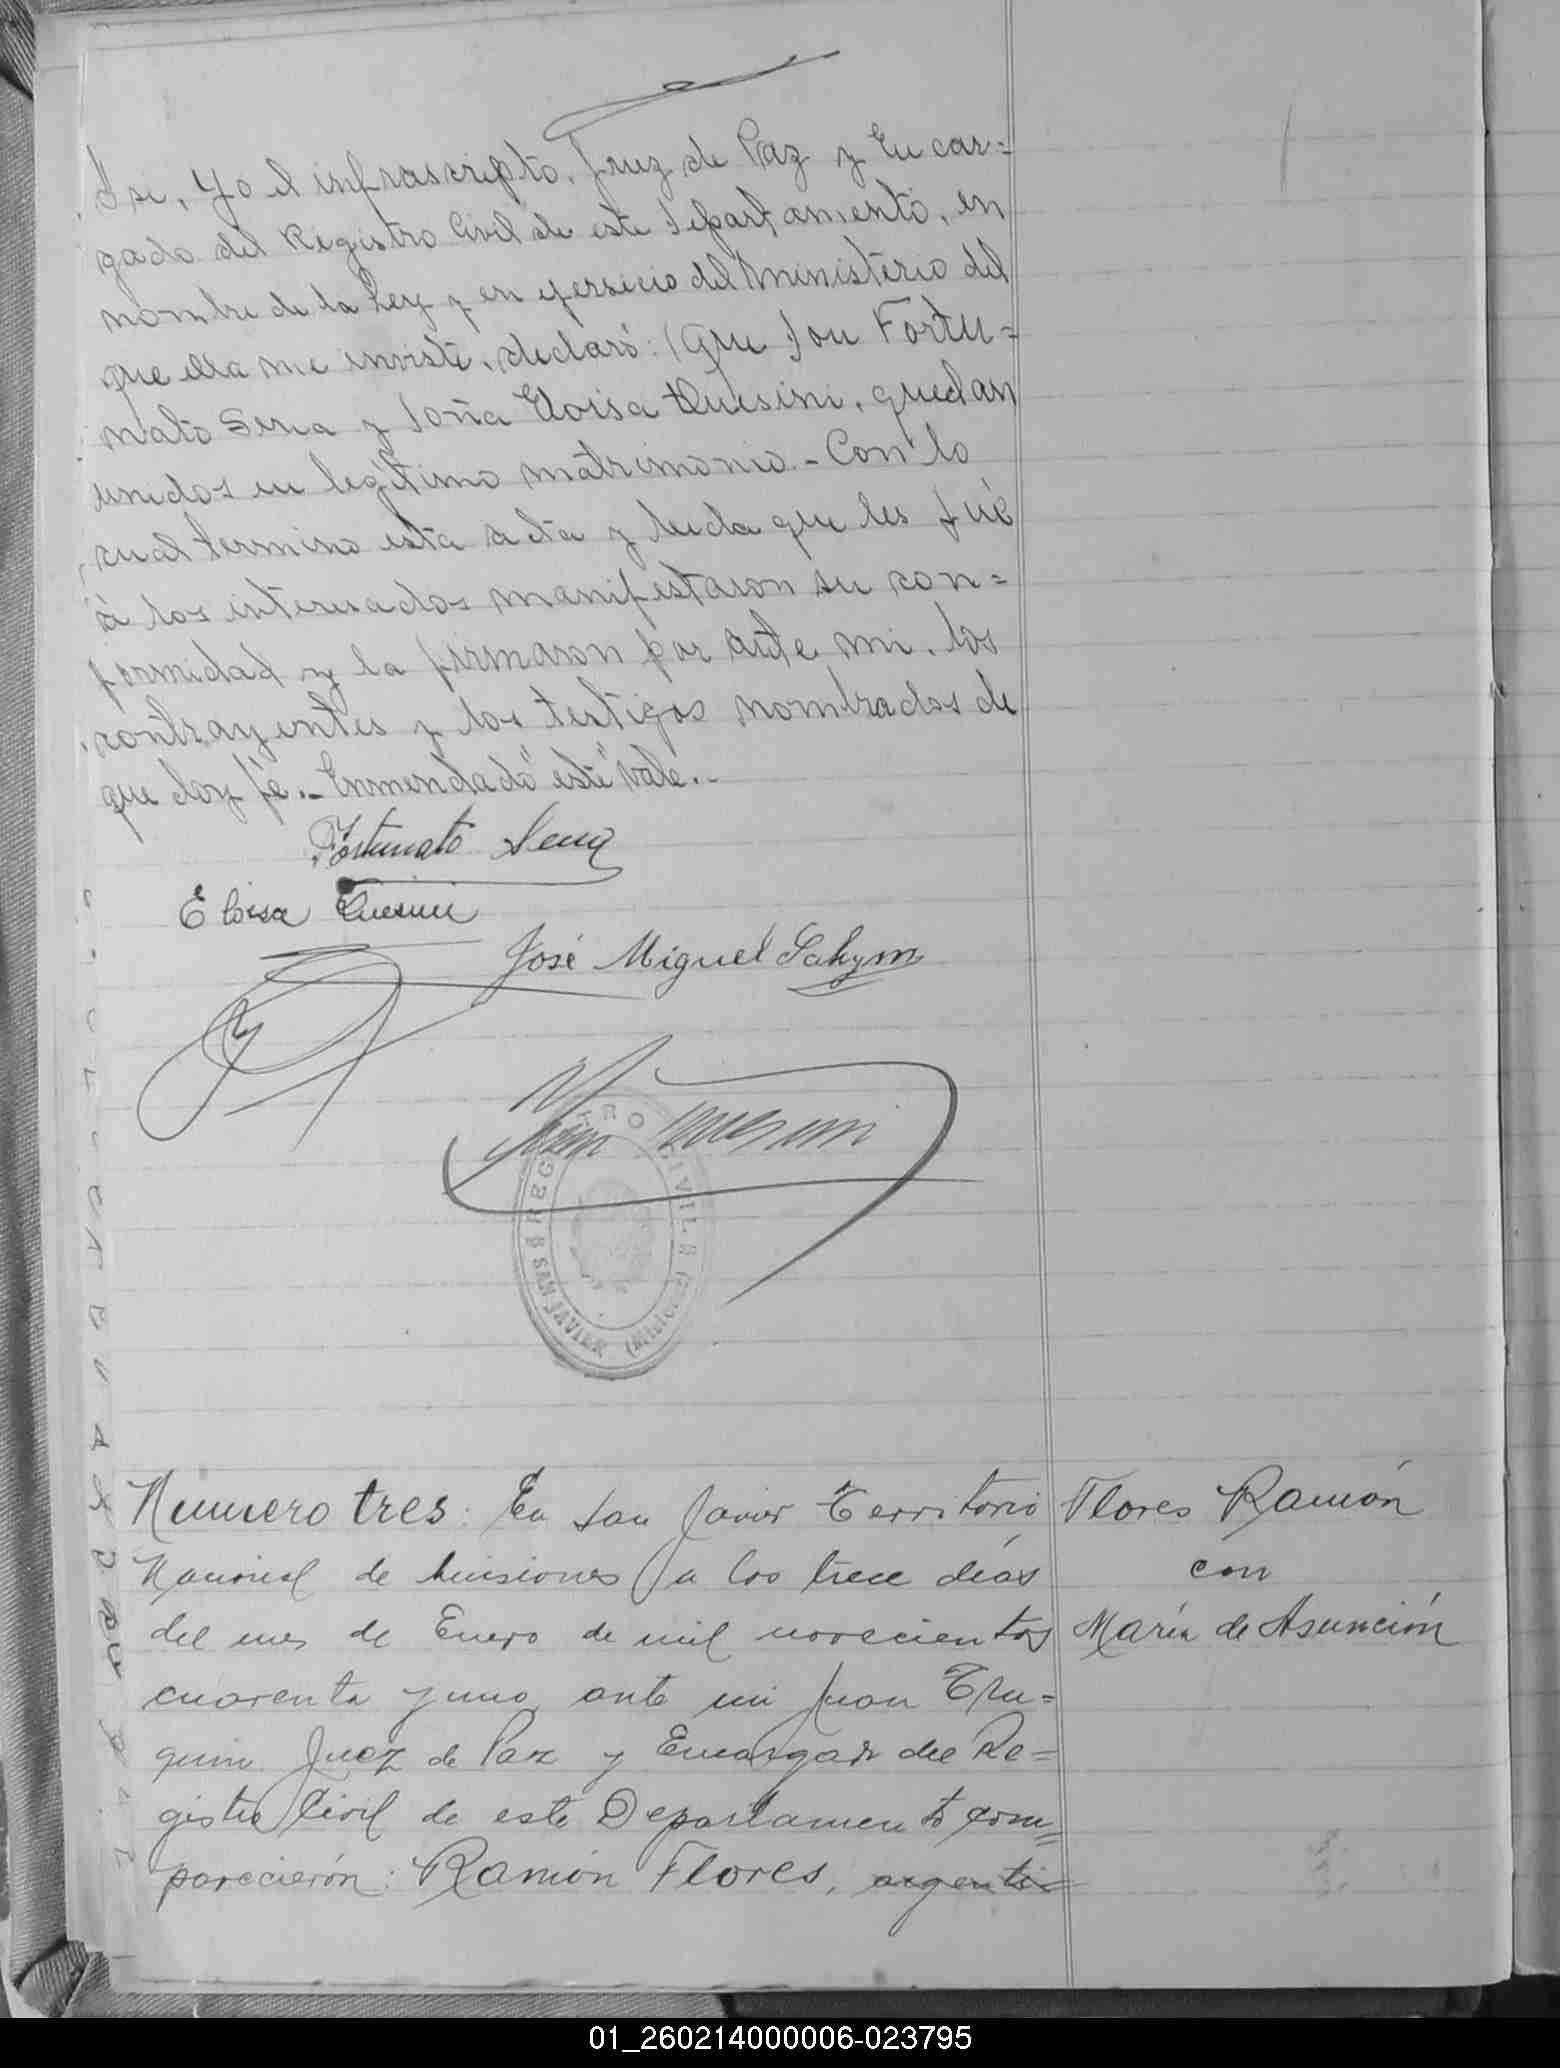 Yo el infrascripto, Juez de Paz y Encar=
gado del Registro Civil de este departamento, en
nombre de la Ley y en ejersicio del Ministerio del
que ella me inviste, declaró: (Que Don Fortu=
nato Sena y Doña Eloisa Quesini, quedan
unidos en legítimo matrimonio.- Con lo
cual termino esta acta y leida que les fué
á los interesados manifestaron su con=
formidad y la firmaron por ante mi, los
contrayentes y los testigos nombrados de
que doy fé.- Enmendado "este" Vale.-
Fortunato Sena
Eloisa Quesini
José Miguel
Quesini
REGISTRO CIVIL
SAN JAVIER (Misiones)
Numero tres: En San Javier Territorio
Nacional de Misiones a los trece días
del mes de Enero de mil novecientos
cuarenta y uno, ante mi Juan Tru=
quin Juez de Paz y Encargado del Re=
gistro Civil de este Departamento com=
parecierón: Ramón Flores, argenti=
Flores Ramón
con
María de Asunción
01_260214000006-023795